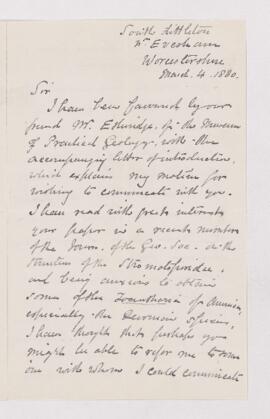 South Littleton
Nr Evesham
Worcestershire
March. 4. 1880.
Sir
I have been favoured by our
friend Mr. Etheridge, of the Museum
of Practical Geology, with the
accompanying letter of introduction,
which explains my motive for
wishing to communicate with you.
I have read with great interest
your paper in a recent number
of the Journ. of the Geo. Soc. on the
structure of the Stromatoporidae,
and being anxious to obtain
some of the of America,
especially the Devonian species,
I have thought that perhaps you
might be able to refer me to some
one with whom I could communicate